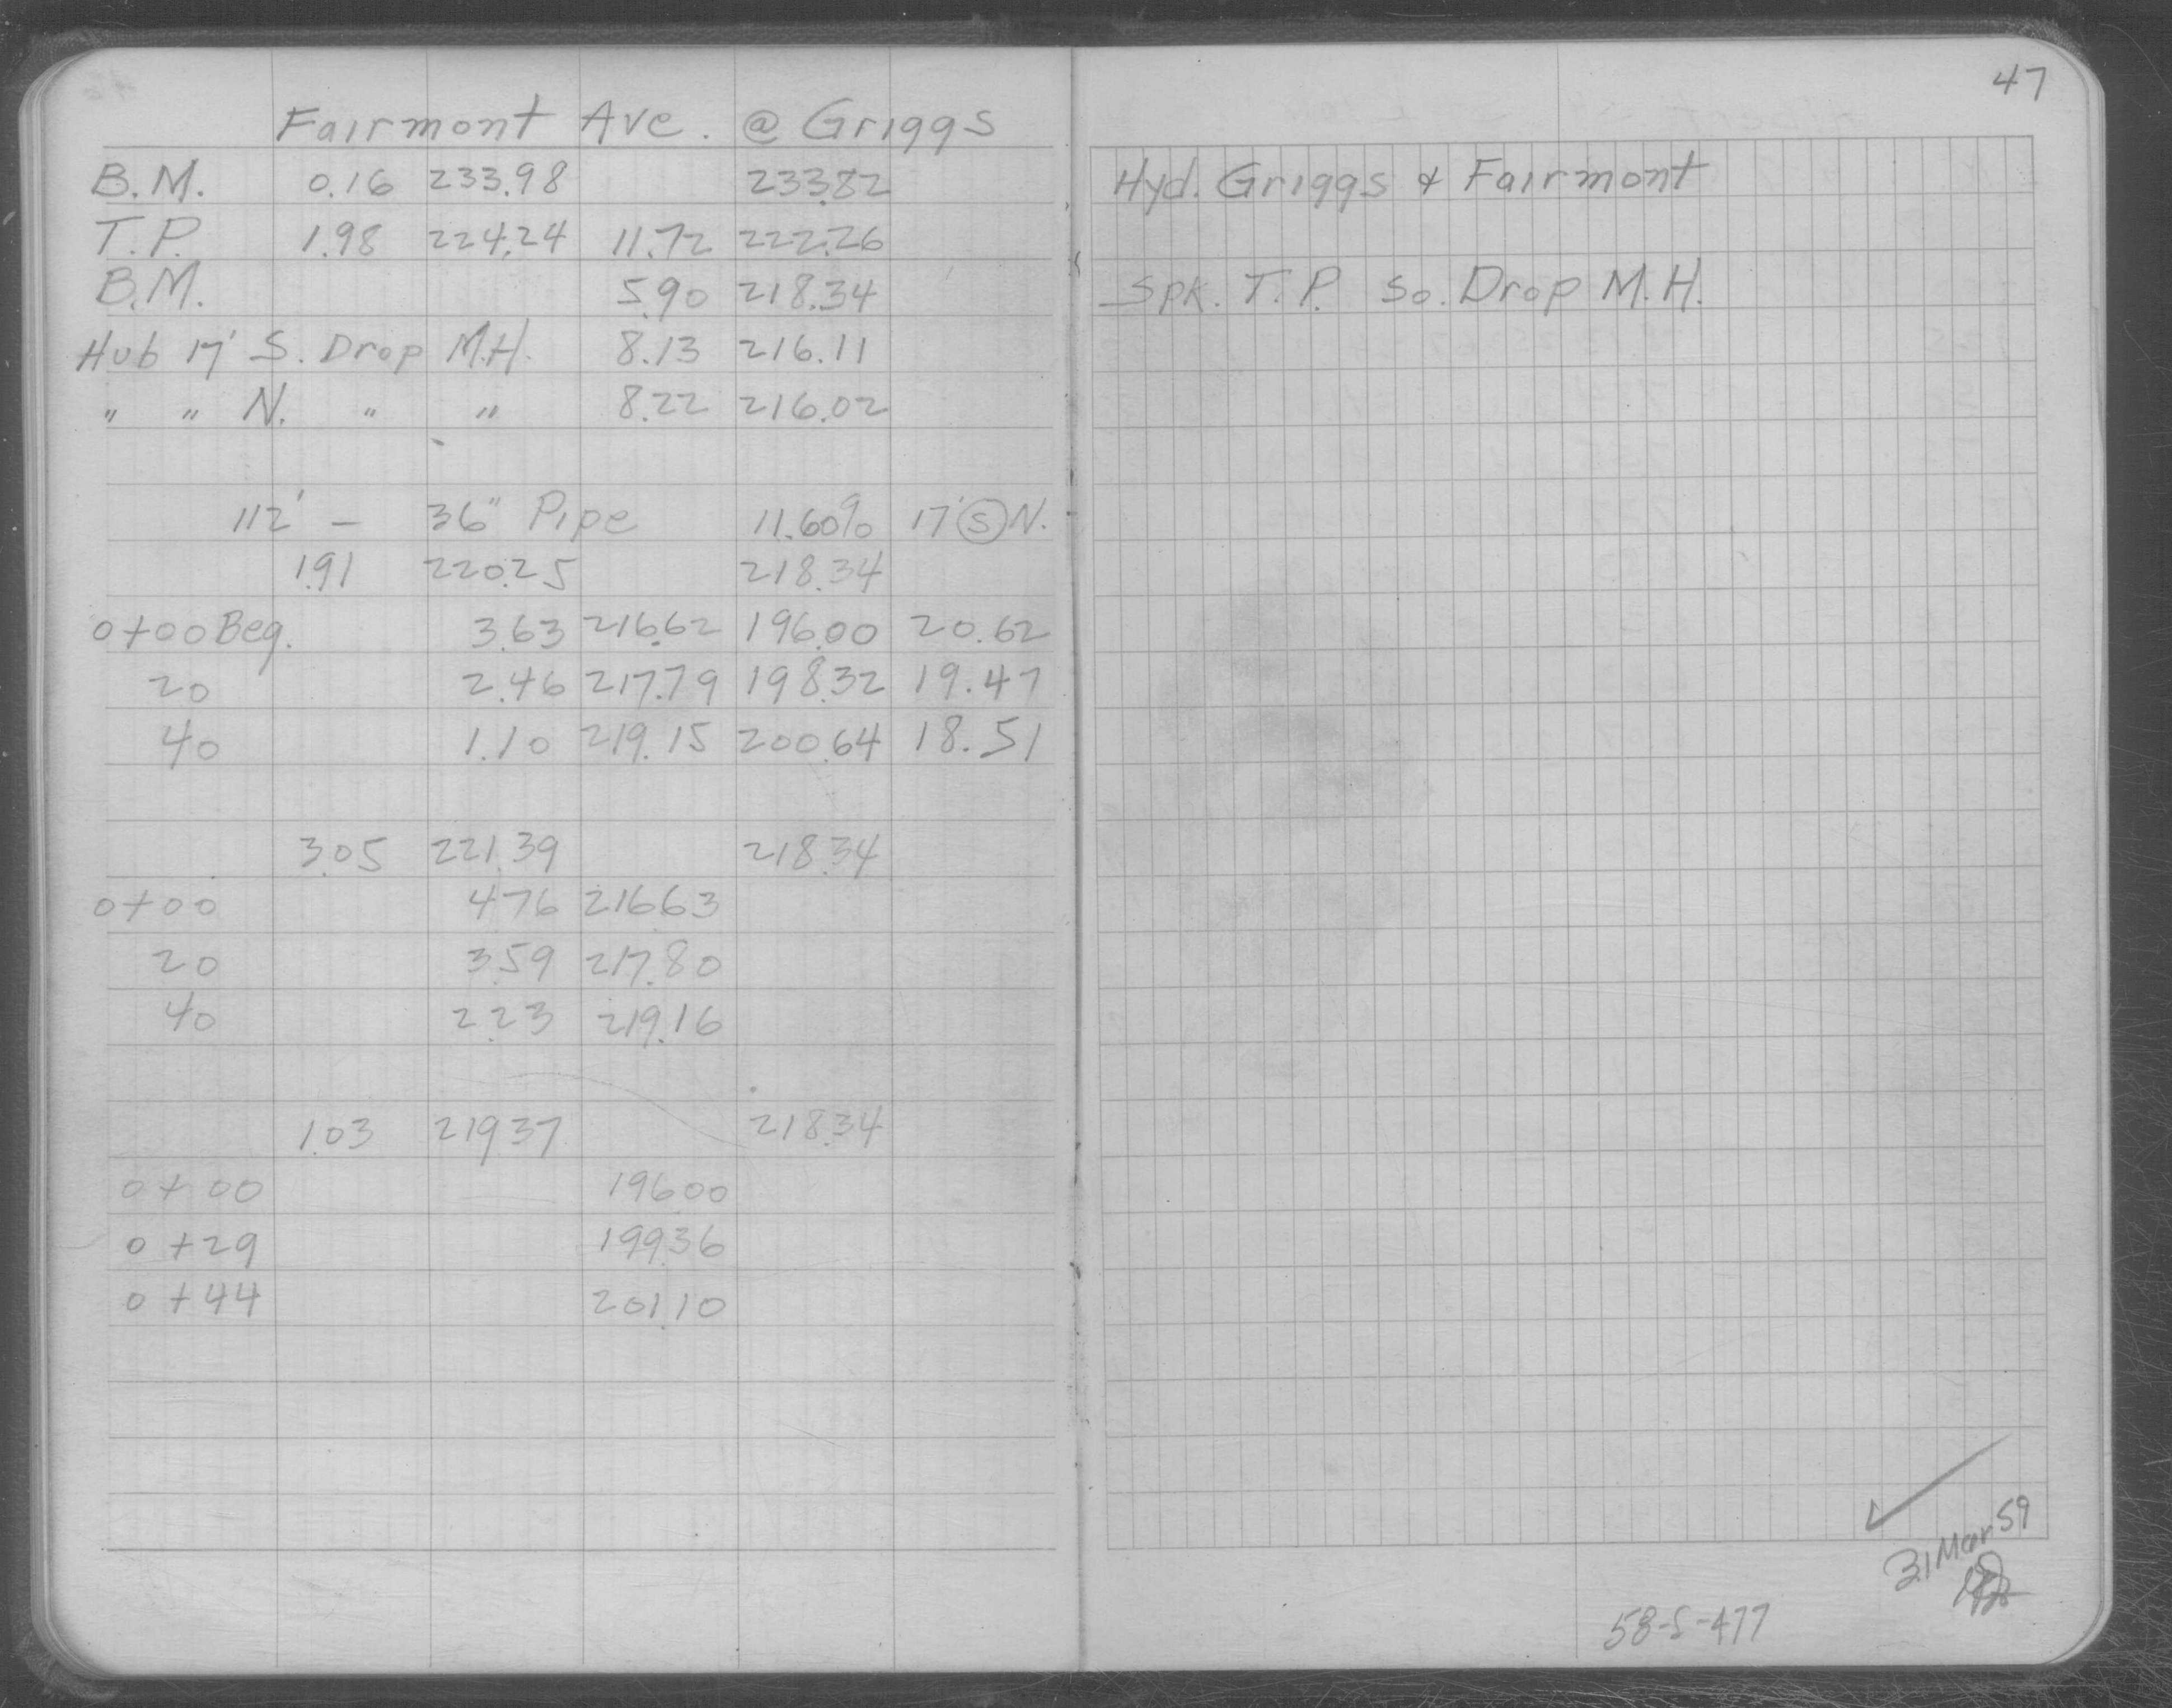 47
Fairmont Ave. @ Griggs
B.M. 0.16 233.98 233.82 Hyd. Griggs & Fairmont
T.P. 1.98 224.24 11.72 222.26
B.M. 5.90 218.34 Spk. T.P. So. Drop M.H.
Hub 17' S. Drop M.H. 8.13 216.11
" " N. " " 8.22 216.02
112' - 36" Pipe 11.60% 17' S N.
1.91 220.25 218.34
0+00 Beg. 3.63 216.62 196.00 20.62
20 2.46 217.79 198.32 19.47
40 1.10 219.15 200.64 18.51
3.05 221.39 218.34
0+00 476 21663
20 359 217.80
40 223 219.16
1.03 21937 218.34
0+00 19600
0+29 19936
0+44 201.10
31 Mar 59
58-S-477